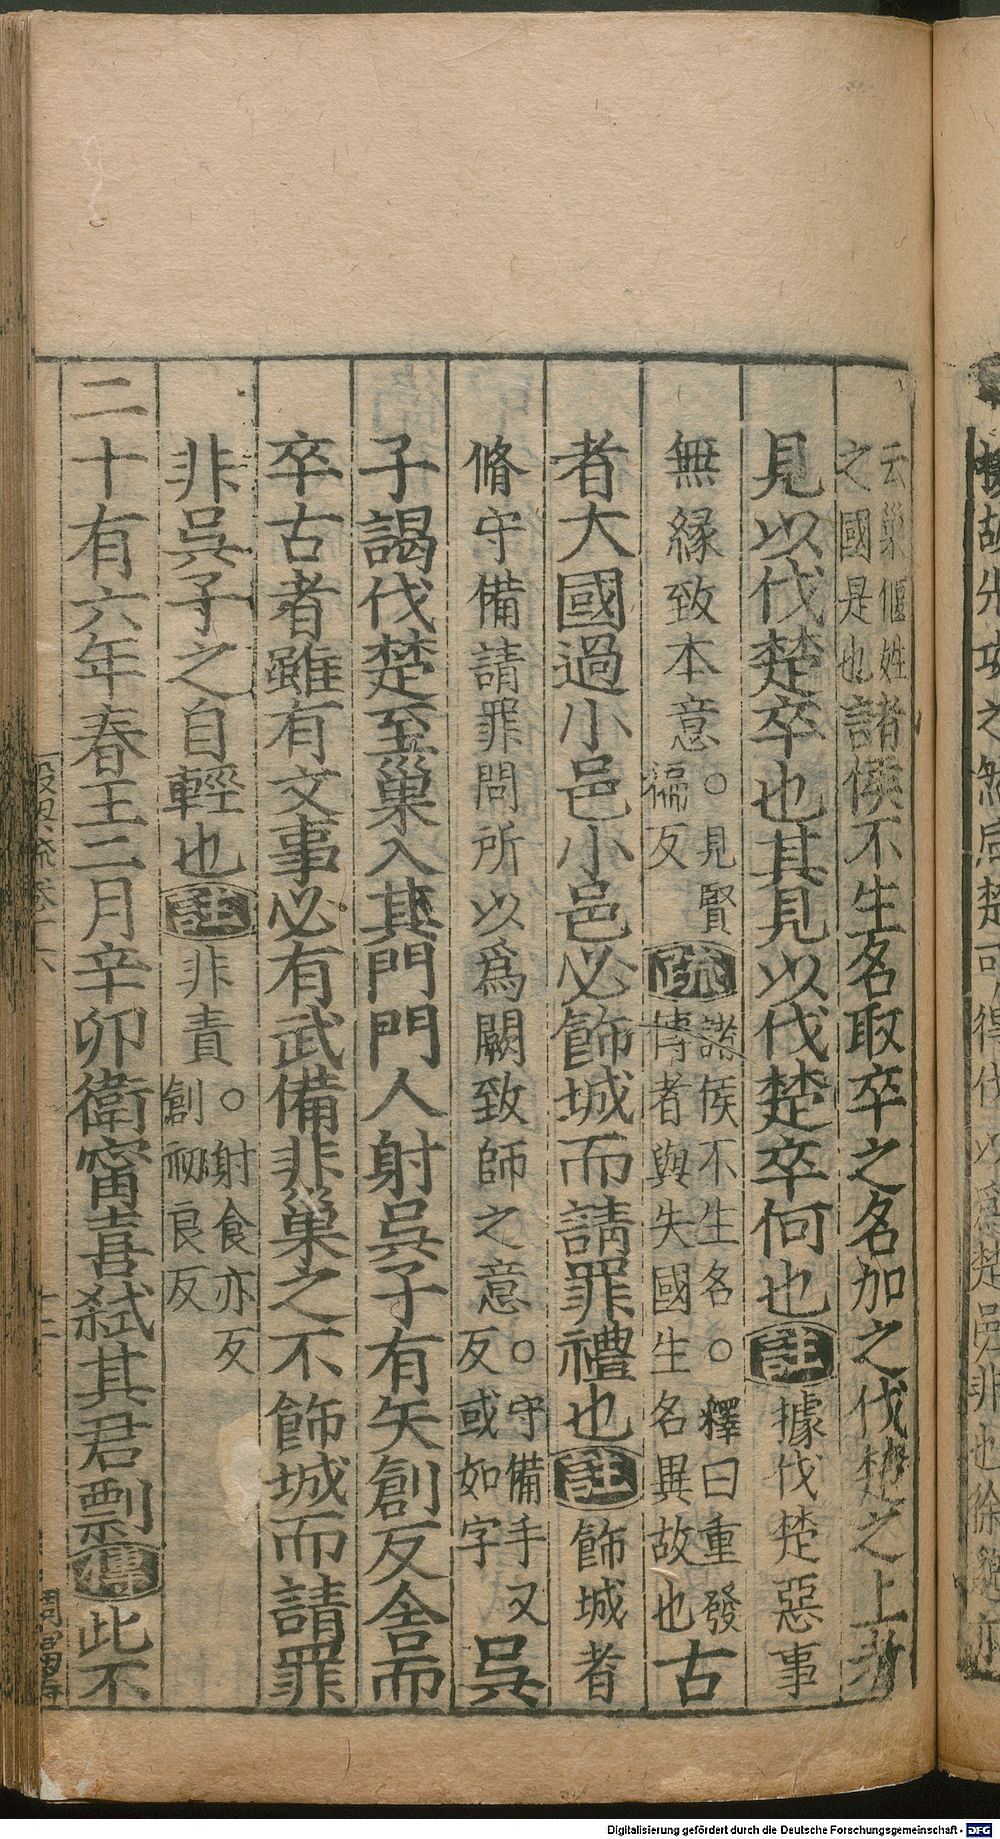 云巢偃姓
之國是也諸侯不生名取卒之名加之伐楚之上者
見以伐楚卒也其見以伐楚卒何也註據伐楚惡事
無緣致本意○見賢
徧反疏諸侯不生名○釋曰重發
傳者與失國生名異故也古
者大國過小邑小邑必飾城而請罪禮也註飾城者
脩守備請罪問所以爲闕致師之意○守備手又
反或如字吳
子謁伐楚至巢入其門門人射吳子有矢創反舍而
卒古者雖有文事必有武備非巢之不飾城而請罪
非吳子之自輕也註非責○射食亦反
創初良反
二十有六年春王二月辛卯衛甯喜弑其君剽傳此不
Digitalisierung gefördert durch die Deutsche Forschungsgemeinschaft - DFG